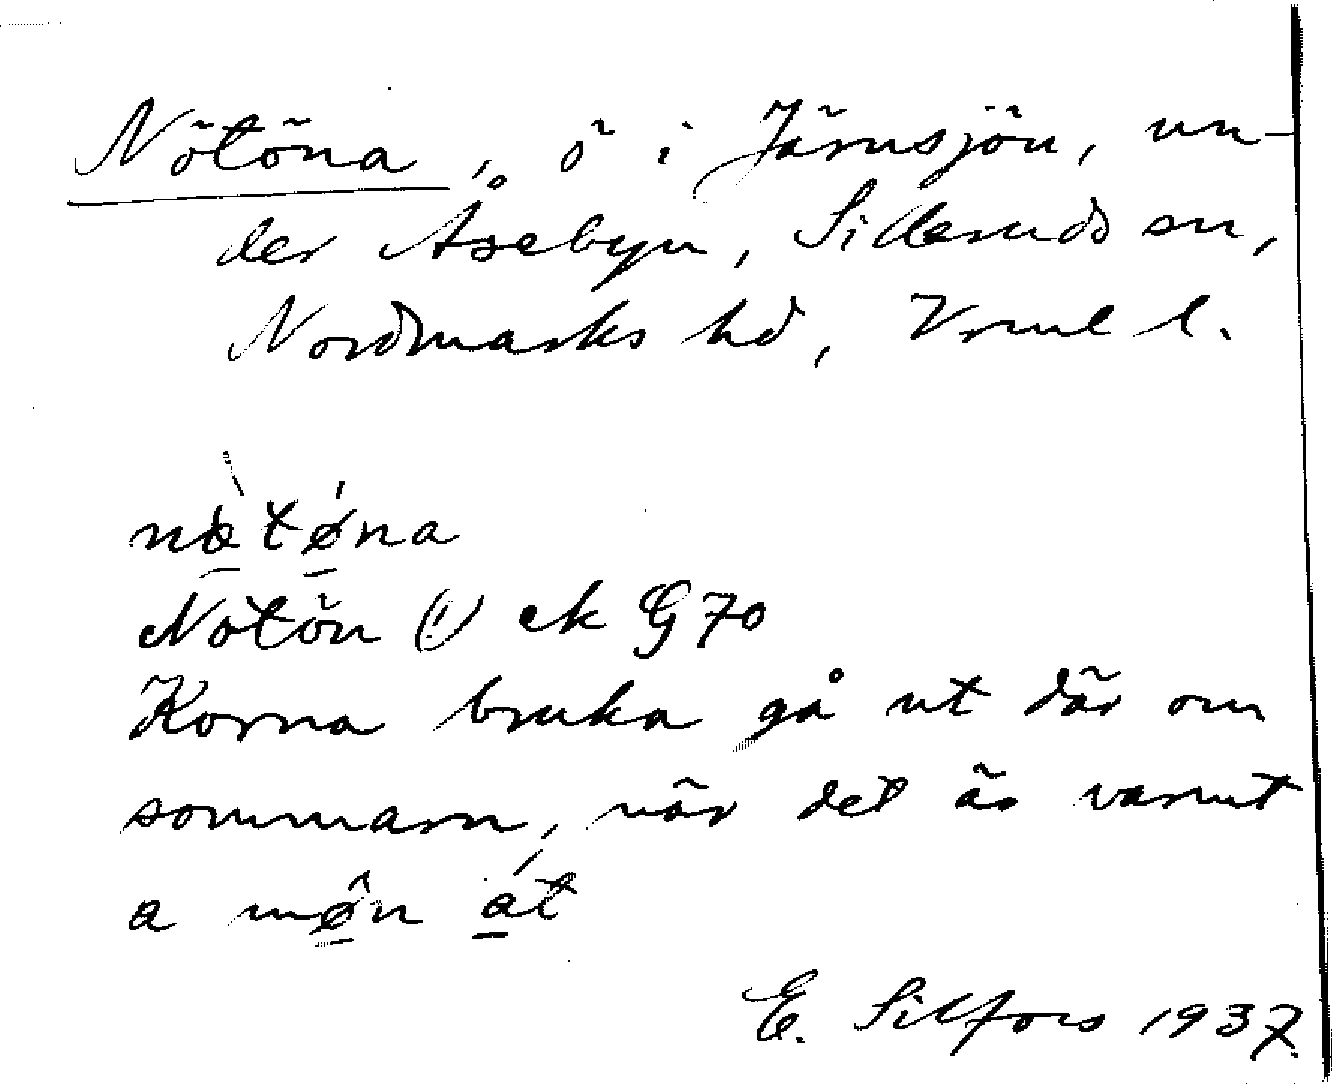 Nötöna, ö i Järnsjön, un-
der Åsebyn, Silleruds sn,
Nordmarks hd, Vrml l.
nø̀tǿna
Nötön (') ek G 70
Korna bruka gå ut där om
sommarn, när det är varmt
a møn át
E. Silfors 1937.